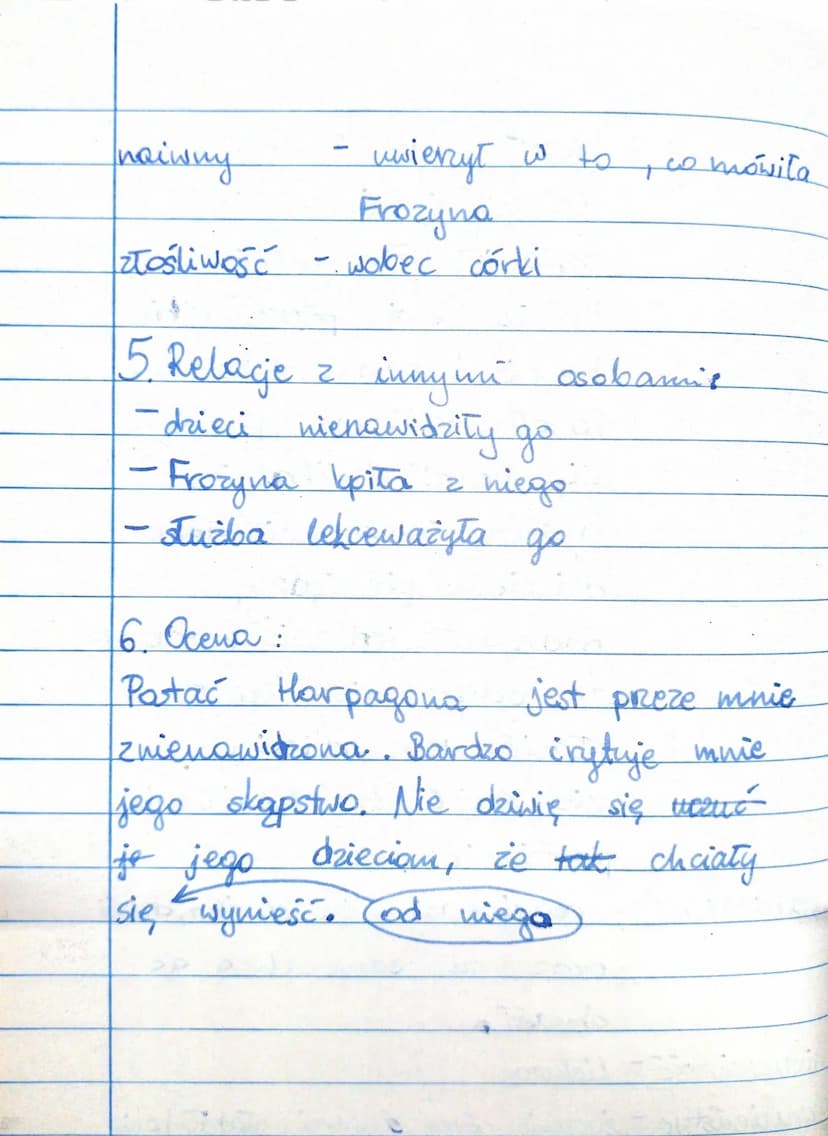 naiwny - uwierzył w to, co mówiła
Frozyna
złośliwość - wobec córki
5. Relacje z innymi osobami:
- dzieci nienawidziły go
- Frozyna kpiła z niego
- służba lekceważyła go
6. Ocena:
Postać Harpagona jest przeze mnie
znienawidzona. Bardzo irytuje mnie
jego skąpstwo. Nie dziwię się uczuć
je jego dzieciom, że tak chciały
się wynieść. od niego